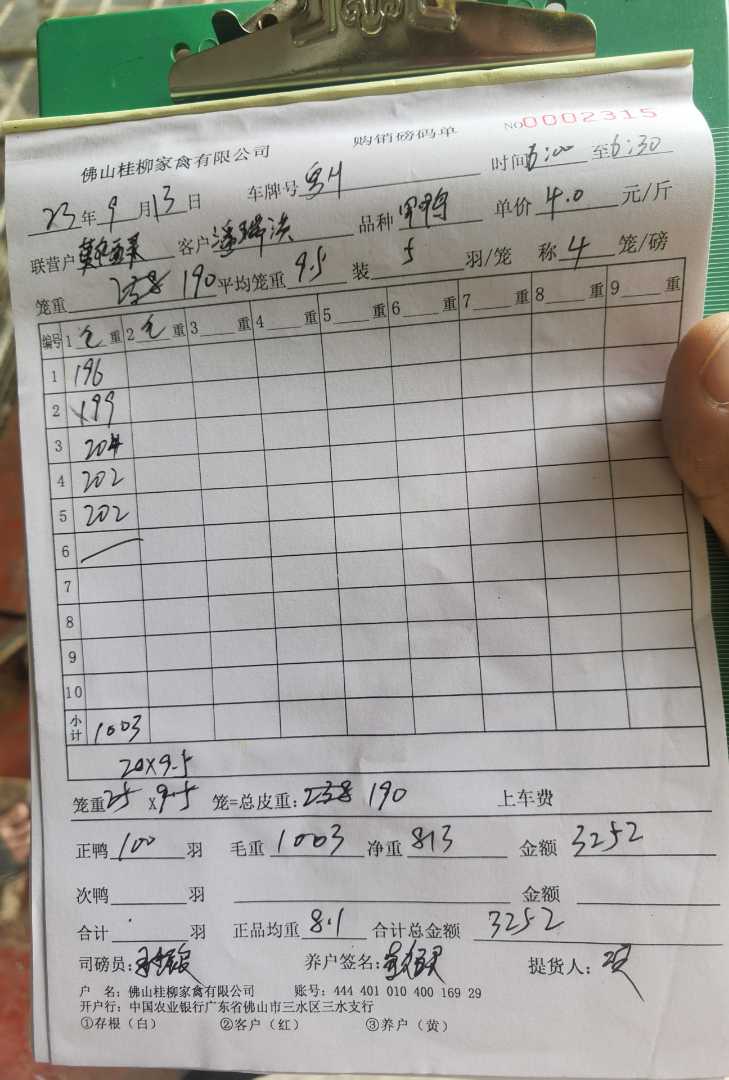 佛山桂柳家禽有限公司 购销磅码单 NO0002315
23年9月13日 车牌号 时间6:00至6:30
联营户 客户潘瑞洪 品种 单价4.0元/斤
笼重 238 190 平均笼重9.5 装5羽/笼 称4笼/磅
编号 1毛重 2毛重 3重 4重 5重 6重 7重 8重 9重
1 196
2 199
3 204
4 202
5 202
6
7
8
9
10
小计 1003
20×9.5
笼重25×9.5笼=总皮重:238 190 上车费
正鸭100羽 毛重1003 净重813 金额3252
次鸭 羽 金额
合计 羽 正品均重8.1 合计总金额3252
司磅员: 养户签名: 提货人:
户 名:佛山桂柳家禽有限公司 账号:444 401 010 400 169 29
开户行:中国农业银行广东省佛山市三水区三水支行
①存根(白) ②客户(红) ③养户(黄)